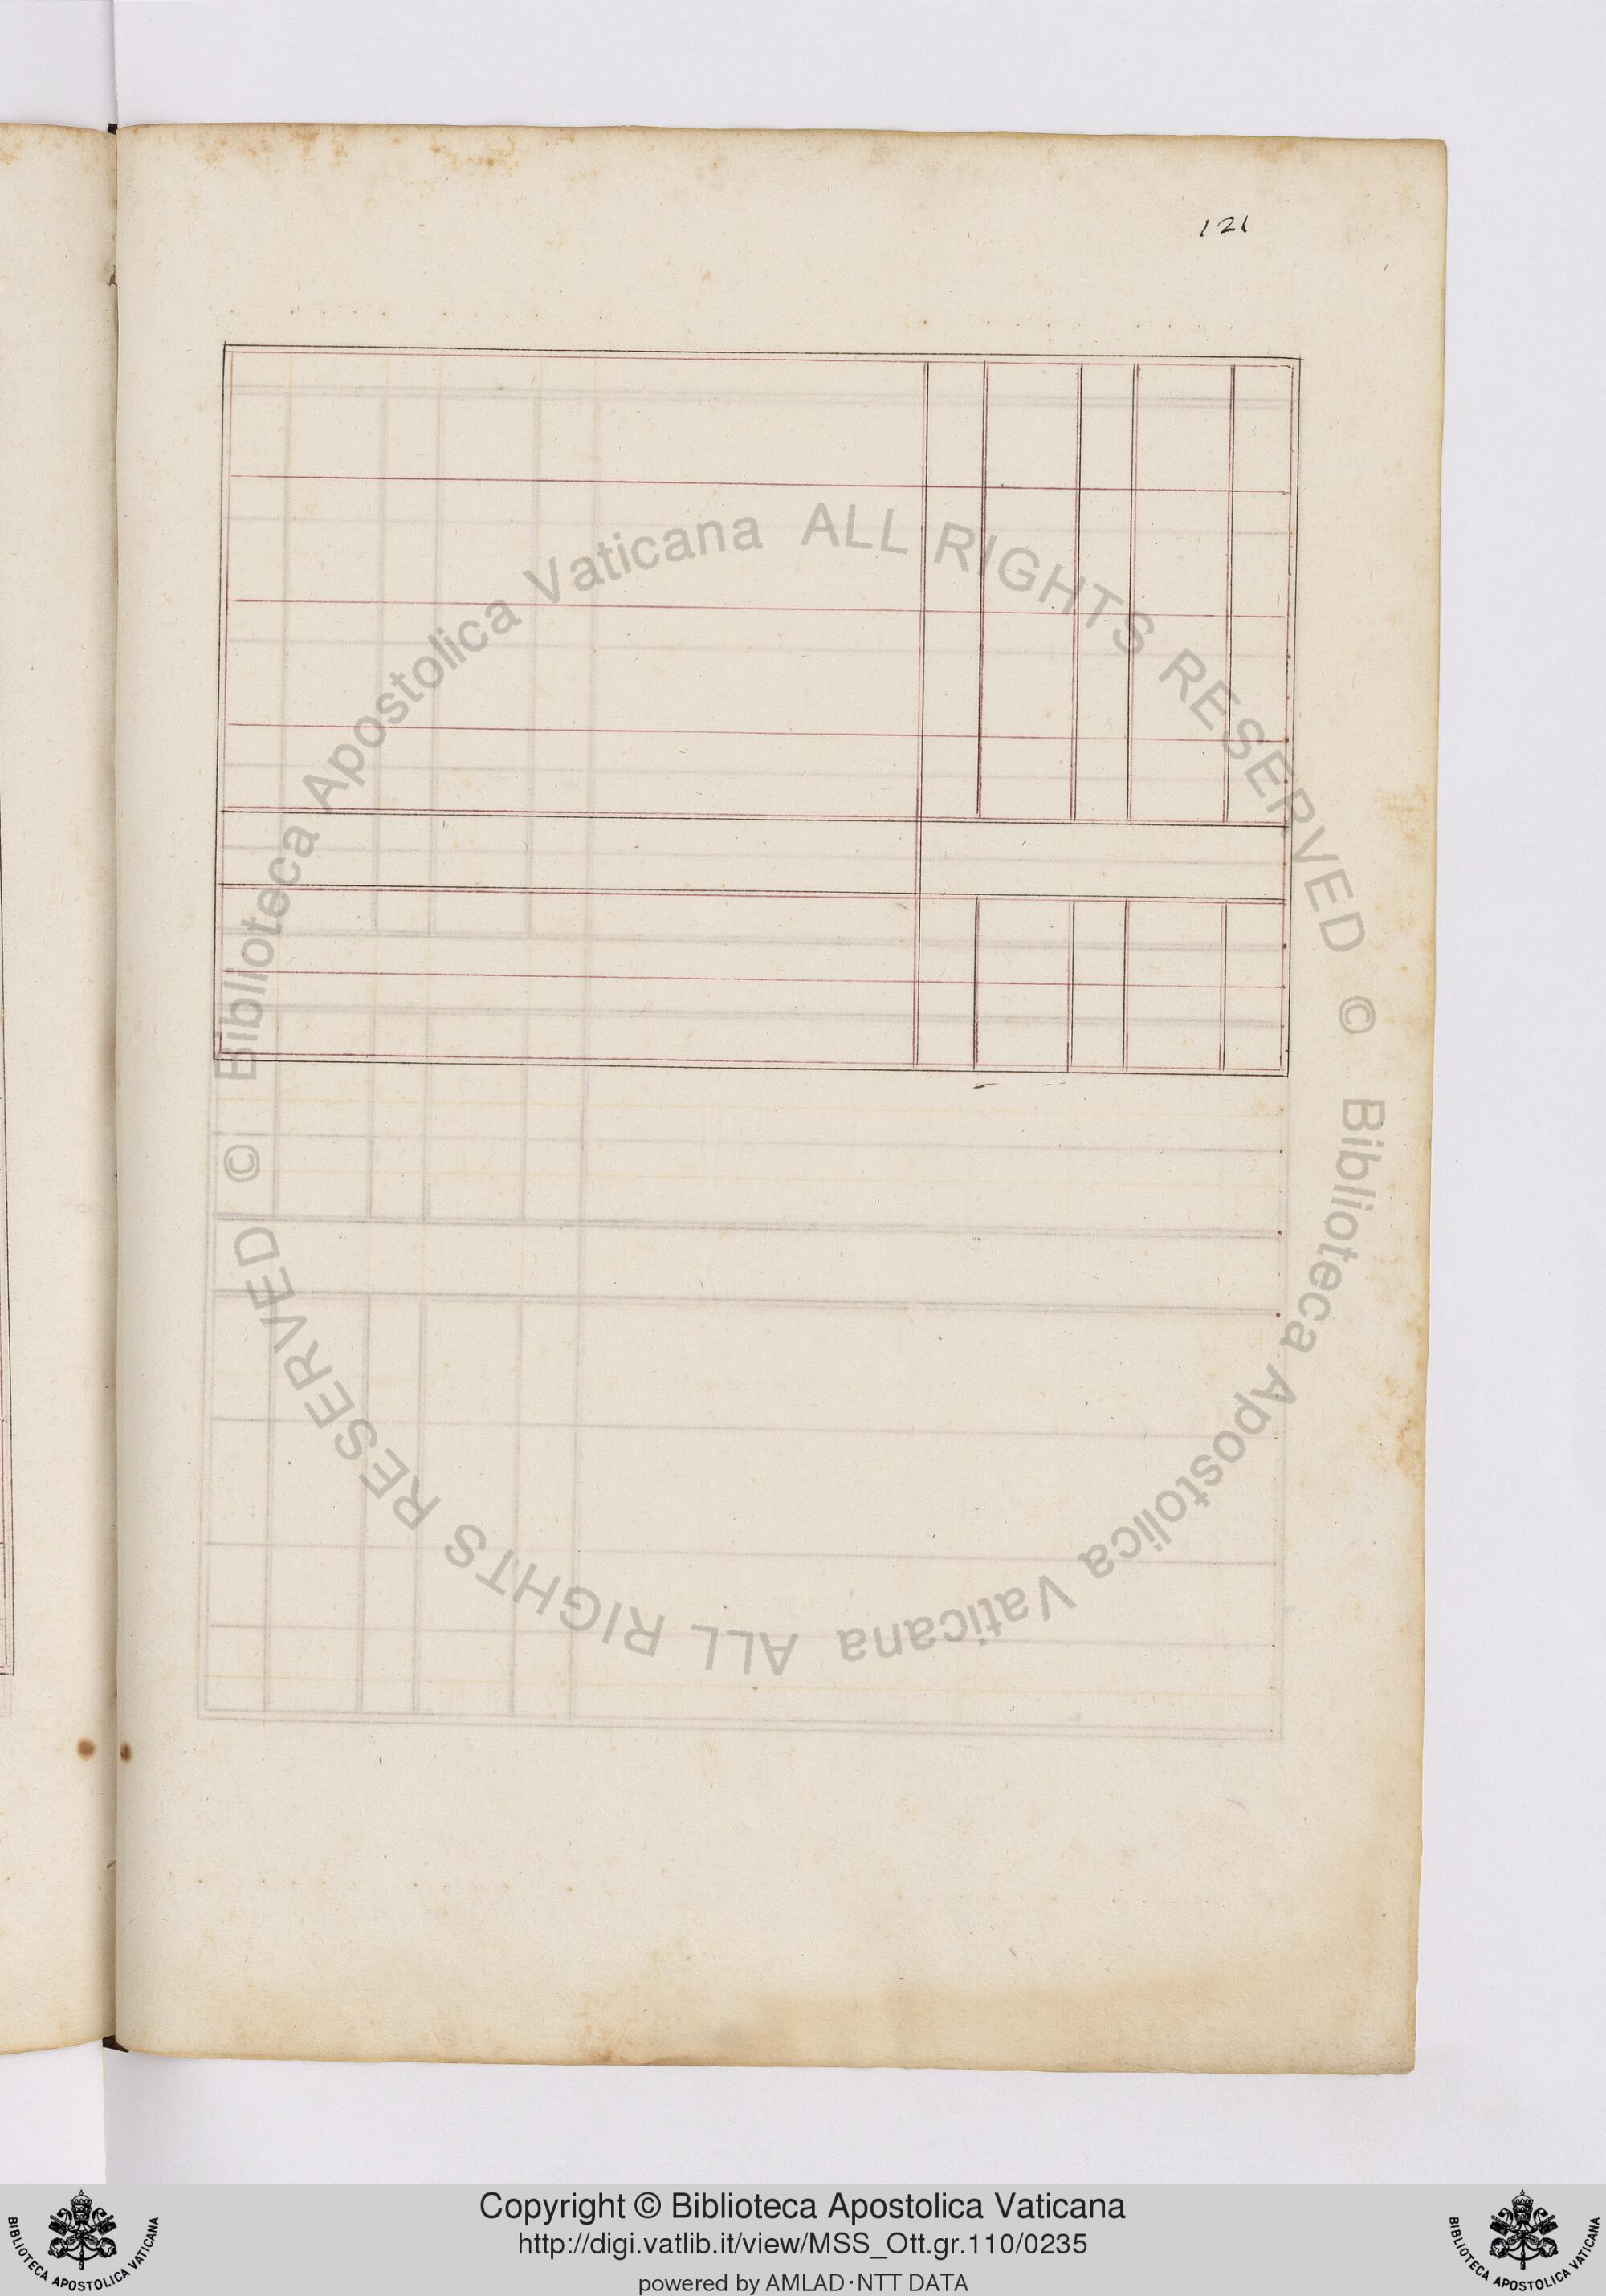 121
© Biblioteca Apostolica Vaticana ALL RIGHTS RESERVED
© Biblioteca Apostolica Vaticana ALL RIGHTS RESERVED
Copyright © Biblioteca Apostolica Vaticana
http://digi.vatlib.it/view/MSS_Ott.gr.110/0235
powered by AMLAD·NTT DATA
BIBLIOTECA APOSTOLICA VATICANA
BIBLIOTECA APOSTOLICA VATICANA